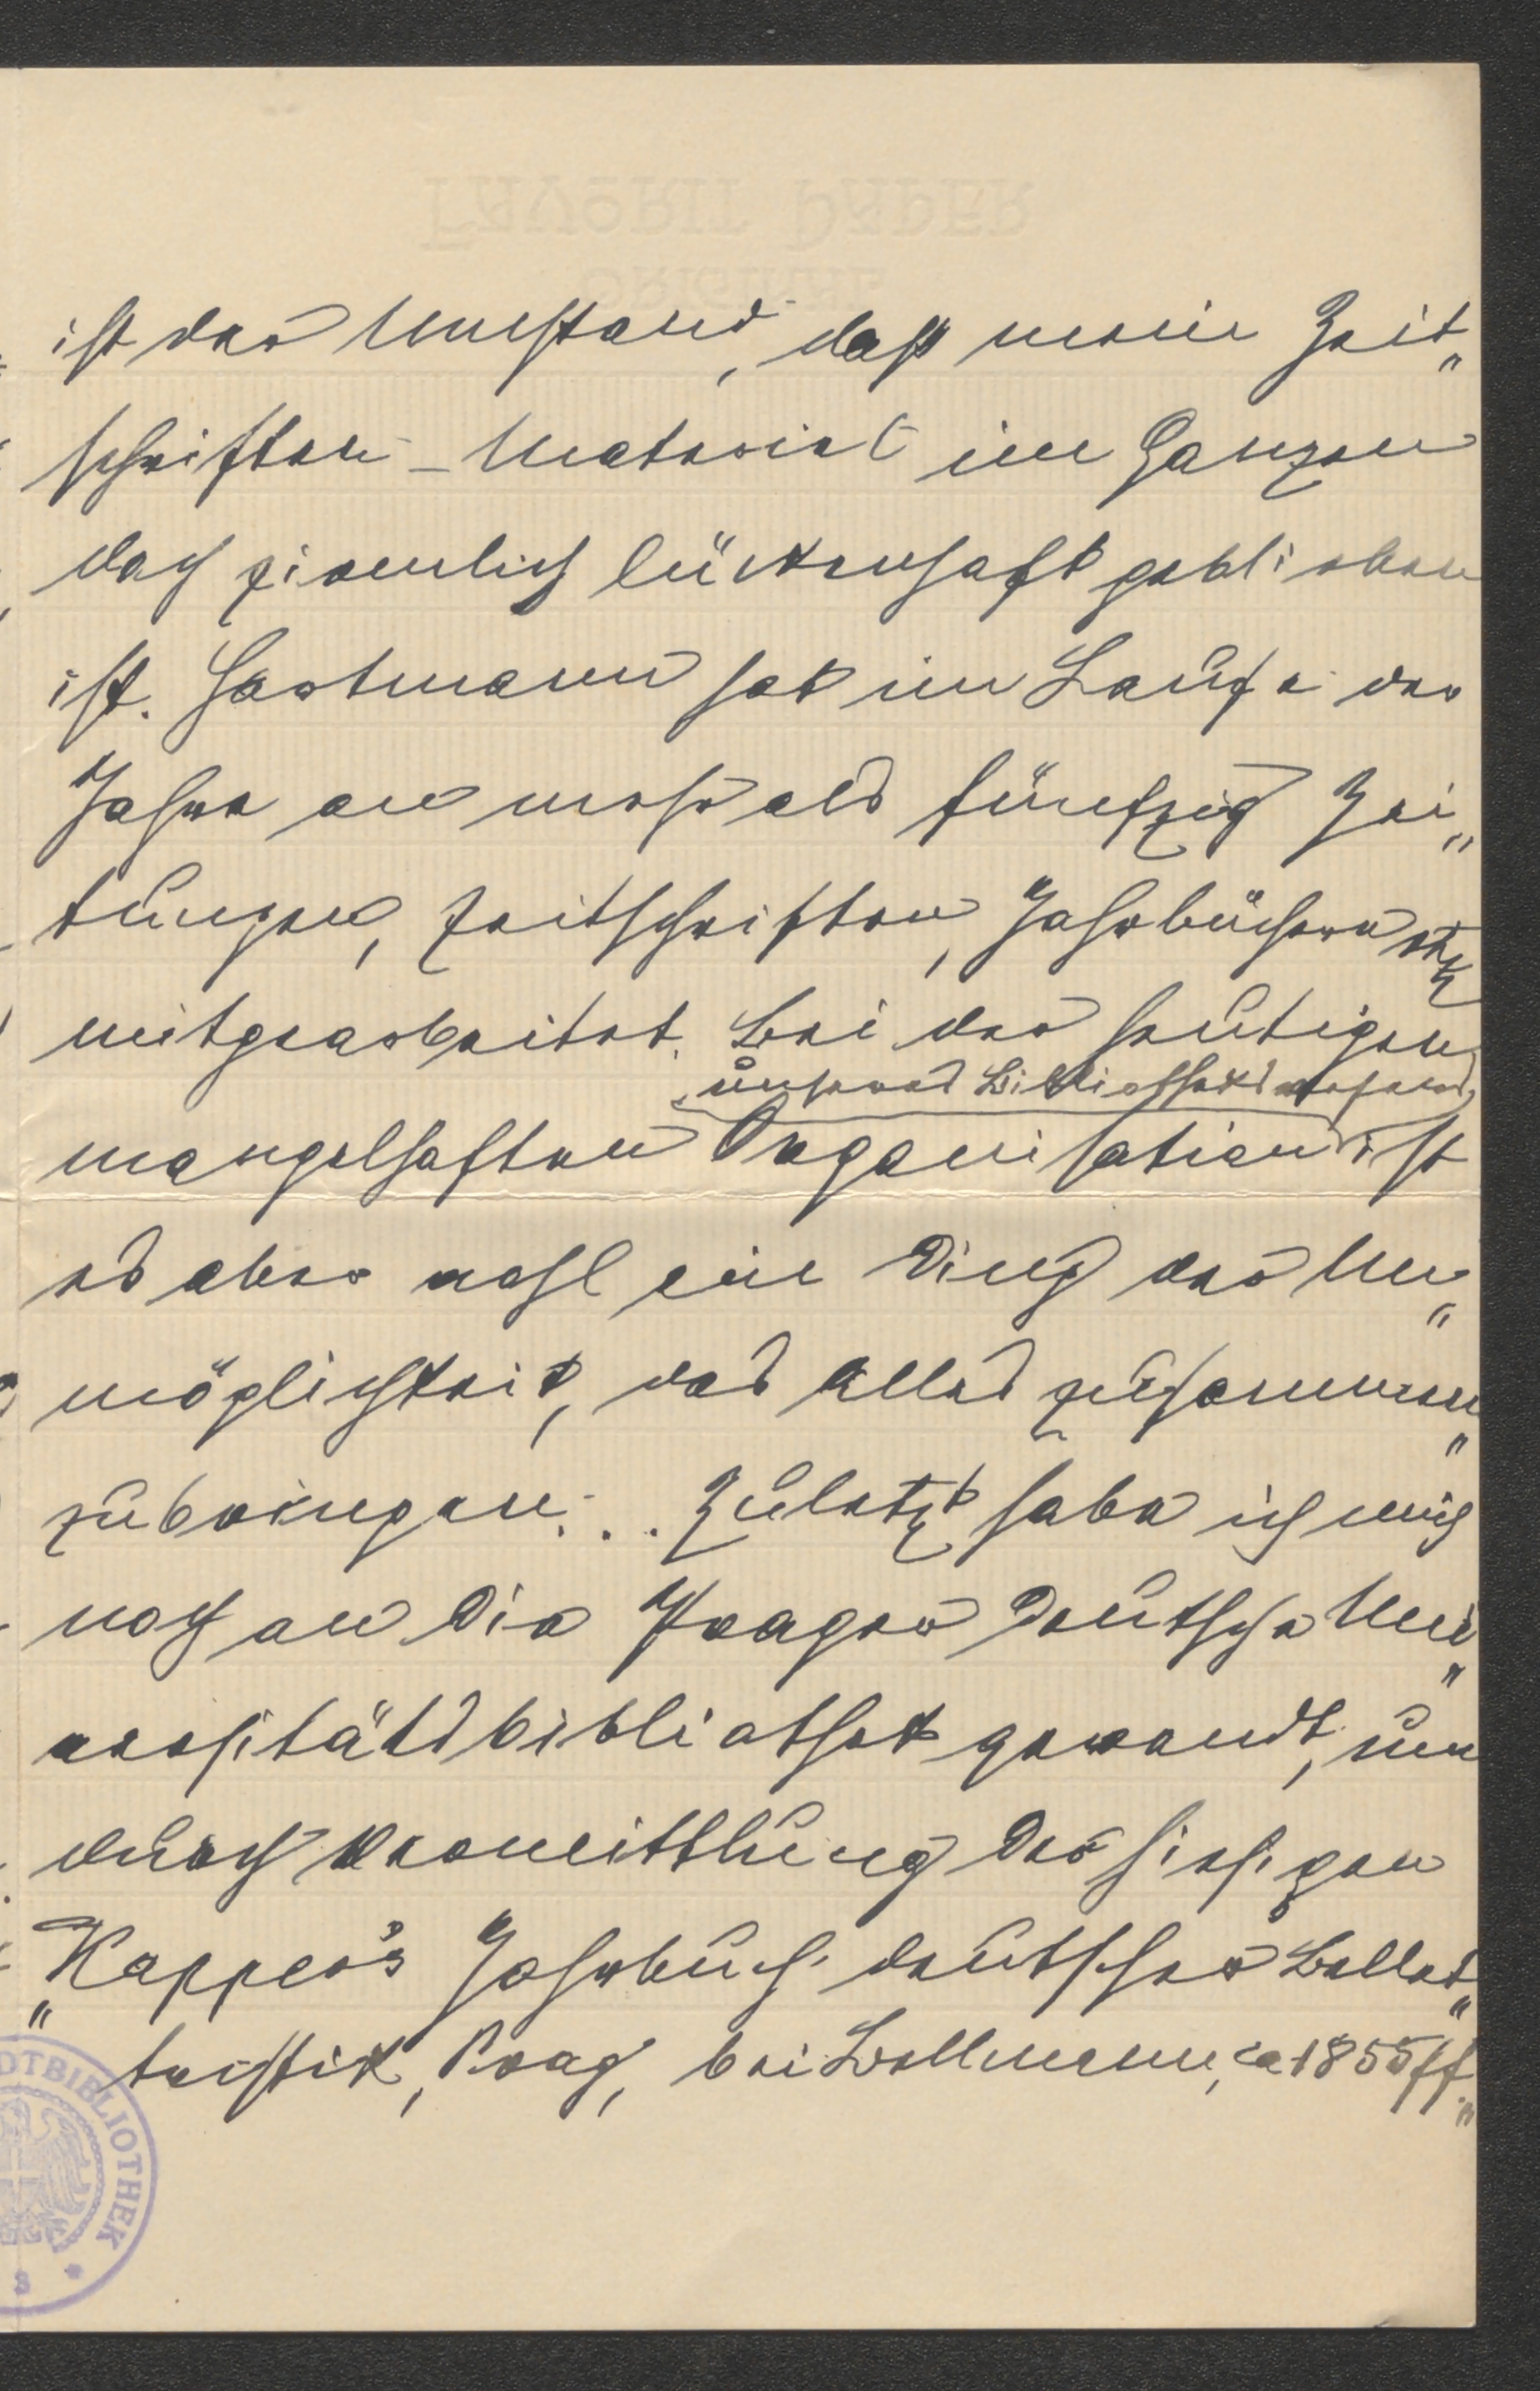 FAVORIT PAPER
ist der Umstand, daß mein Zeit„
schriften-Material im Ganzen
doch ziemlich lückenhaft geblieben
ist. Hartmann hat im Laufe der
Jahre an mehr als fünfzig Zei„
tungen, Zeitschriften, Jahrbüchern etz
mitgearbeitet. Bei der heutigen
unseres Bibliothekswesens,
mangelhaften Organisation ist
es aber wohl ein Ding der Un„
möglichkeit, das alles zusammen„
zubringen... Zuletzt habe ich mich
noch an die Prager Deutsche Uni„
versitätsbibliothek gewandt, um
durch Vermittlung der hiesigen
„Kapper's Jahrbuch deutscher Bellet„
tristik, Prag, bei Bellmann, ca 1855 ff."
DTBIBLIOTHEK